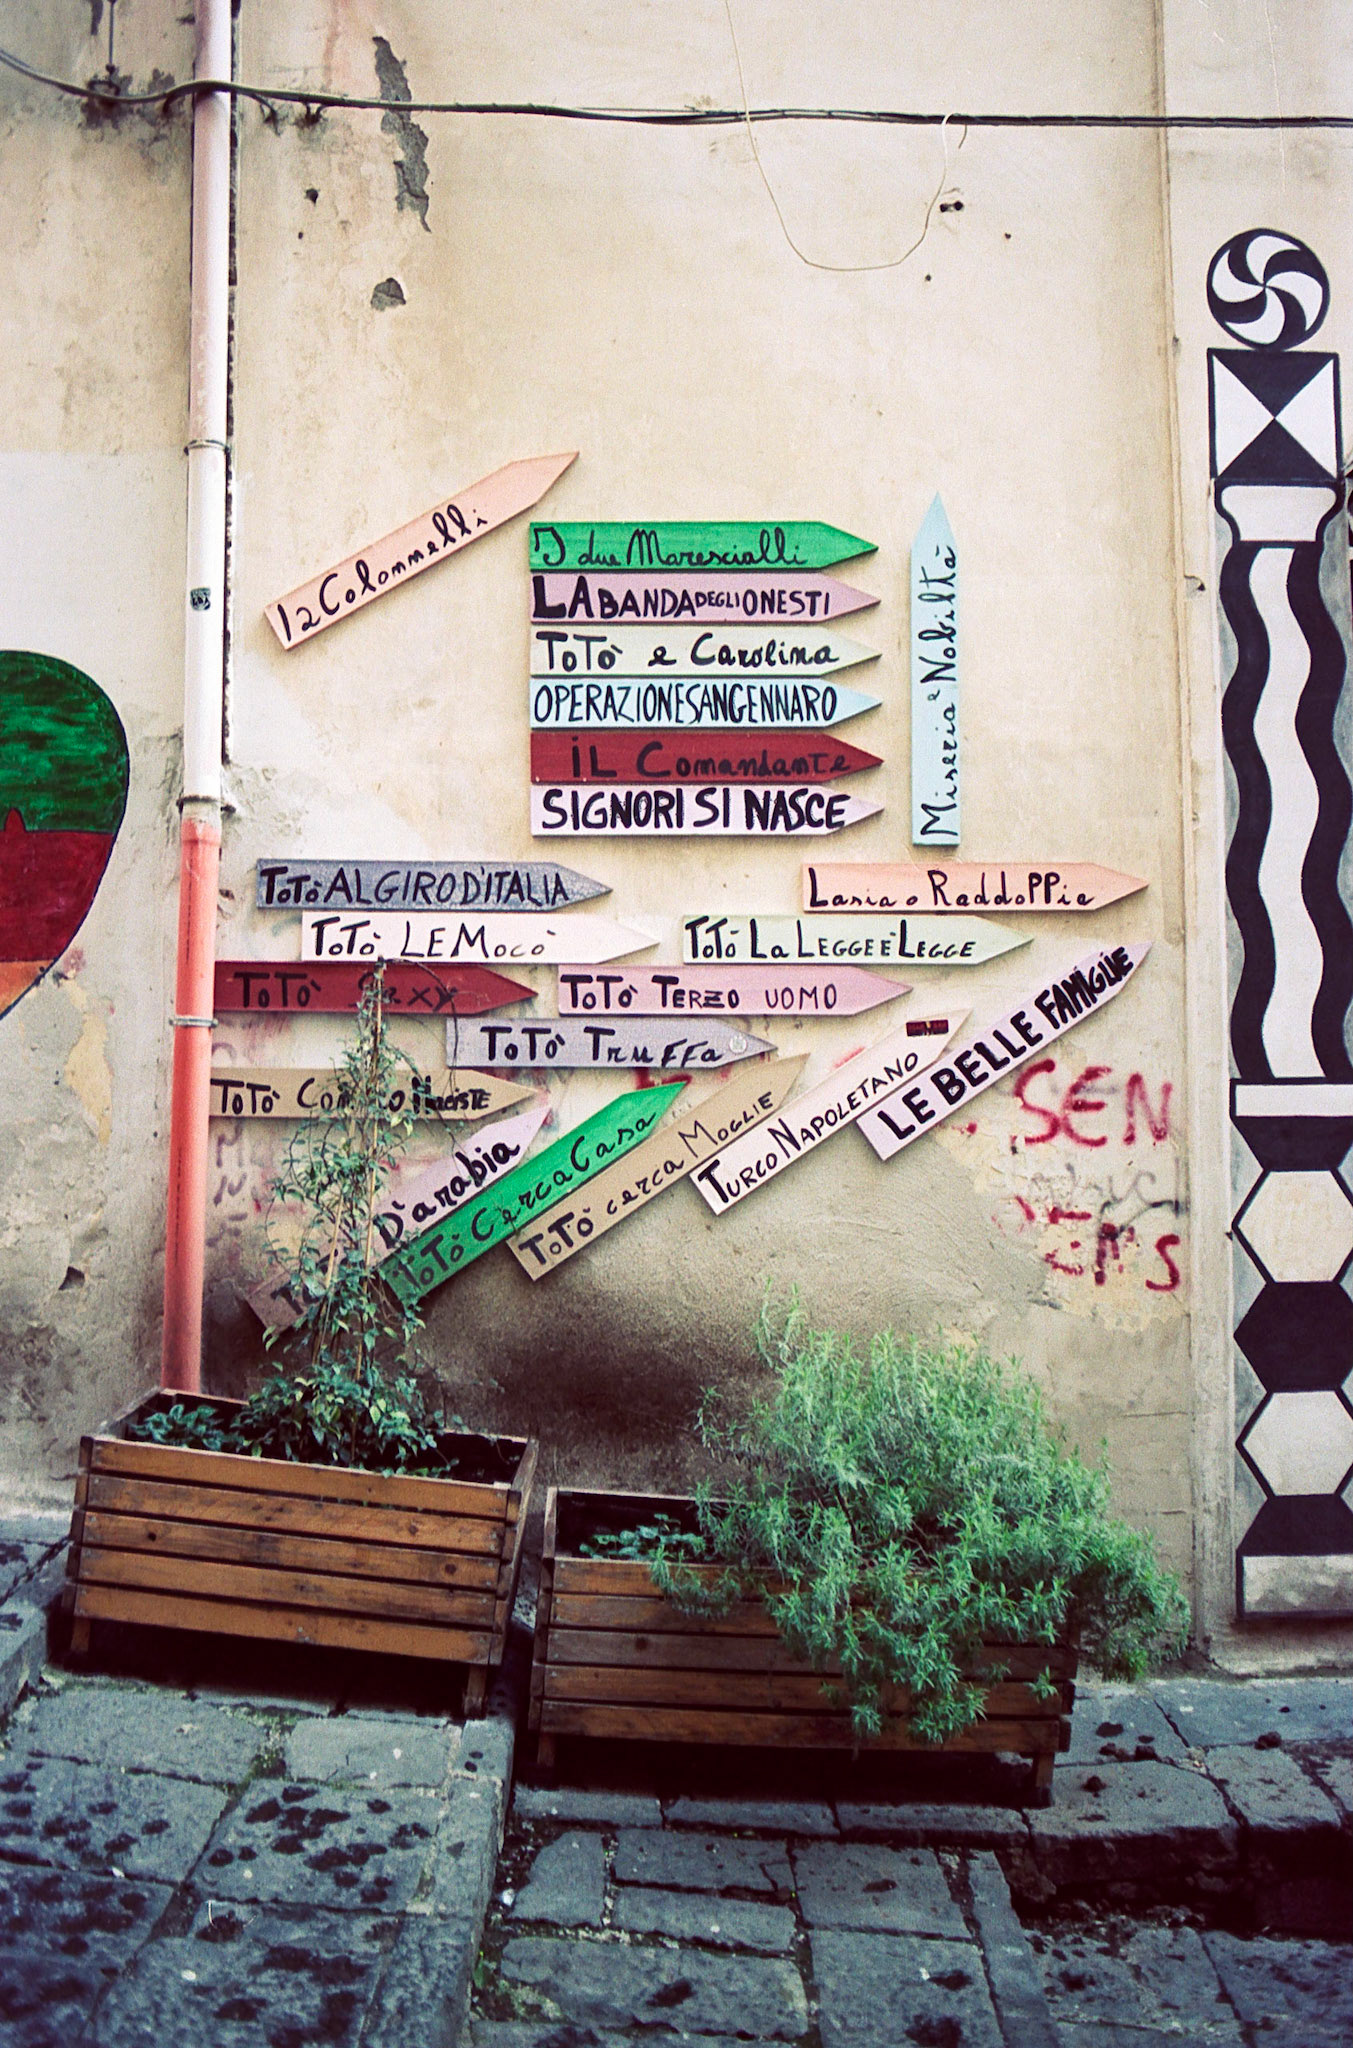 I2 Colonnelli
I due Marescialli
LA BANDA DEGLI ONESTI
TOTÒ e Carolina
OPERAZIONE SAN GENNARO
iL Comandante
SIGNORI SI NASCE
Miseria e Nobiltà
TOTÒ AL GIRO D'ITALIA
Lascia o RaddoPPia
TOTÒ LE MOCÒ
TOTÒ La LEGGE È LEGGE
TOTÒ Sexy
TOTÒ TERZO UOMO
TOTÒ TruFFa
LE BELLE FAMIGLIE
TOTÒ
TURCO NAPOLETANO
TOTÒ cerca MOGLIE
TOTÒ Cerca Casa
D'arabia
SEN